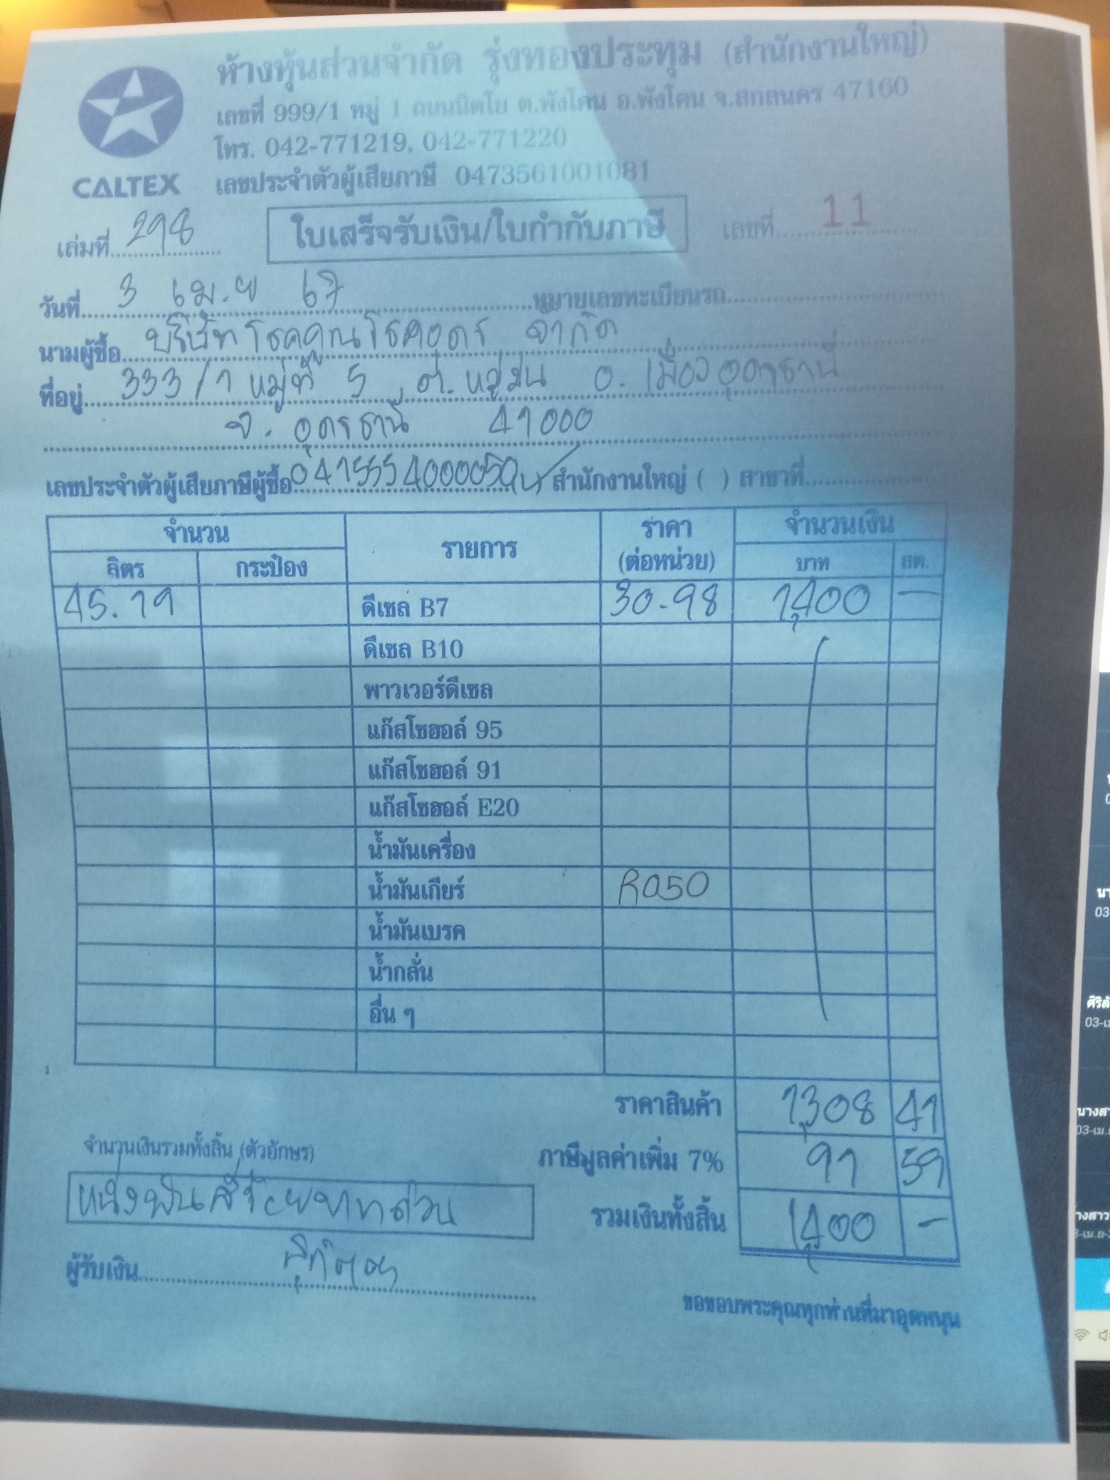 ห้างหุ้นส่วนจำกัด รุ่งทองประทุม (สำนักงานใหญ่)
เลขที่ 999/1 หมู่ 1 ถนนนิตโย ต.พังโคน อ.พังโคน จ.สกลนคร 47160
โทร. 042-771219, 042-771220
CALTEX เลขประจำตัวผู้เสียภาษี 0473561001081
เล่มที่ 298 ใบเสร็จรับเงิน/ใบกำกับภาษี เลขที่ 11
วันที่ 3 เม.ย 67 หมายเลขทะเบียนรถ
นามผู้ซื้อ บริษัท โชคคูณโชคอุดร จำกัด
ที่อยู่ 333/1 หมู่ที่ 5 ต.หมูม่น อ.เมืองอุดรธานี
จ.อุดรธานี 41000
เลขประจำตัวผู้เสียภาษีผู้ซื้อ สำนักงานใหญ่ ( ) สาขาที่
จำนวน รายการ ราคา (ต่อหน่วย) จำนวนเงิน
ลิตร กระป๋อง บาท สต.
45.19 ดีเซล B7 30.98 1,400 -
ดีเซล B10
พาวเวอร์ดีเซล
แก๊สโซฮอล์ 95
แก๊สโซฮอล์ 91
แก๊สโซฮอล์ E20
น้ำมันเครื่อง
น้ำมันเกียร์ R050
น้ำมันเบรค
น้ำกลั่น
อื่น ๆ
ราคาสินค้า 1,308 41
จำนวนเงินรวมทั้งสิ้น (ตัวอักษร) ภาษีมูลค่าเพิ่ม 7% 91 59
หนึ่งพันสี่ร้อยบาทถ้วน รวมเงินทั้งสิ้น 1,400 -
ผู้รับเงิน
ขอขอบพระคุณทุกท่านที่มาอุดหนุน